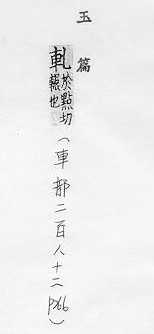 玉篇
軋
於黠切
輾也
(車部二百八十二